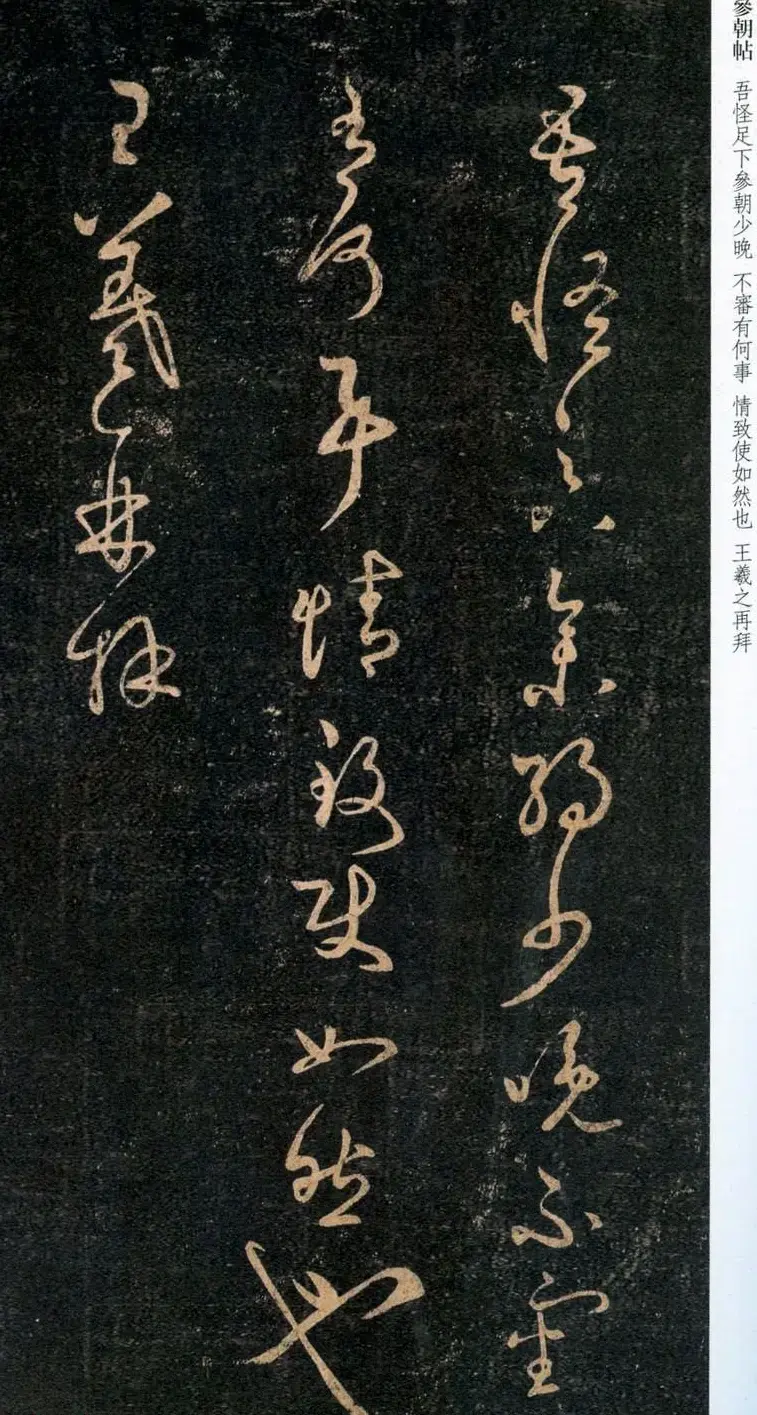 參朝帖 吾怪足下參朝少晚 不審有何事 情致使如然也 王羲之再拜
吾怪足下參朝少晚不審
有何事情致使如然也
王羲之再拜